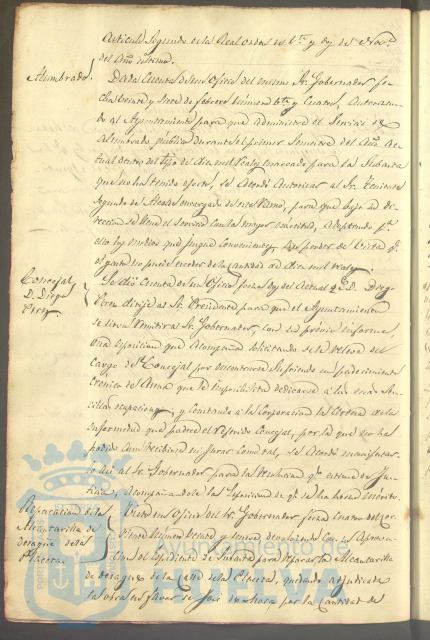 Artículo segundo de la Real orden de 1.ª y doy de Nov.e
del año último.
Alumbrado.
Dada cuenta de un Oficio del mismo Sr. Gobernador fe-
cha veinte y siete de febrero número y cuatro, Autorizan-
do al Ayuntamiento para que administre el servicio de
alumbrado público durante el primer semestre del año ac-
tual dentro del tipo de diez mil reales marcado para la subasta
que no ha tenido efecto, se acordó autorizar al Sr. Teniente
segundo de Alcalde encargado de este ramo, para que bajo su di-
rección se lleve el servicio con la mayor exactitud, adoptando p.ª
ello los medios que juzgue convenientes, sin perder de vista q.e
el gasto no puede exceder de la cantidad de diez mil reales.
Concejal
D. Diego
Perez
Se dió cuenta de un Oficio fecha doy del actual q.e D. Diego
Perez dirije al Sr. Presidente para que el Ayuntamiento
se sirva remitir al Sr. Gobernador, con su previo informe,
una esposicion que acompaña solicitando se le releve del
cargo de Concejal por encontrarse sufriendo un padecimiento
crónico de asma que le imposibilita dedicarse a las mas sen-
cillas ocupaciones, y constando a la Corporacion la certeza de la
enfermedad que padece el referido Concejal, por la que no ha
podido aun recibirse ni jurar como tal, se acordó manifestar-
lo así al Sr. Gobernador para la resolucion q.e estime de jus-
ticia, acompañandole la esposicion de q.e se ha hecho mérito.
Reparacion de la
Alcantarilla de
desague de la
Placeta.
Visto un Oficio del Sr. Gobernador fecha cuatro del cor-
riente número ciento y nueve, devolviendo con su aproba-
cion el espediente de subasta para reparar la Alcantarilla
de desague de la calle de la Placeta, quedando adjudicada
la obra en favor de José de Mora por la cantidad de
Ayuntamiento de